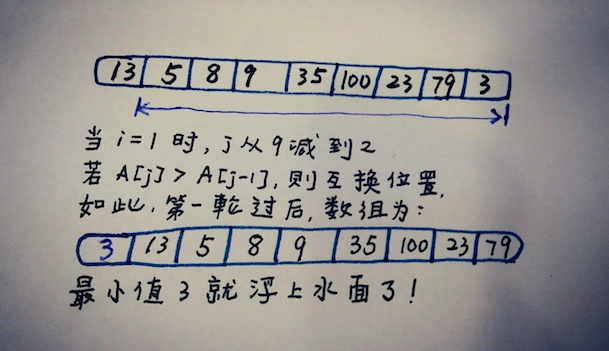 13 5 8 9 35 100 23 79 3
当 i=1 时, J 从 9 减到 2
若 A[j] > A[j-1], 则互换位置,
如此, 第一轮过后, 数组为:
3 13 5 8 9 35 100 23 79
最小值 3 就浮上水面了!